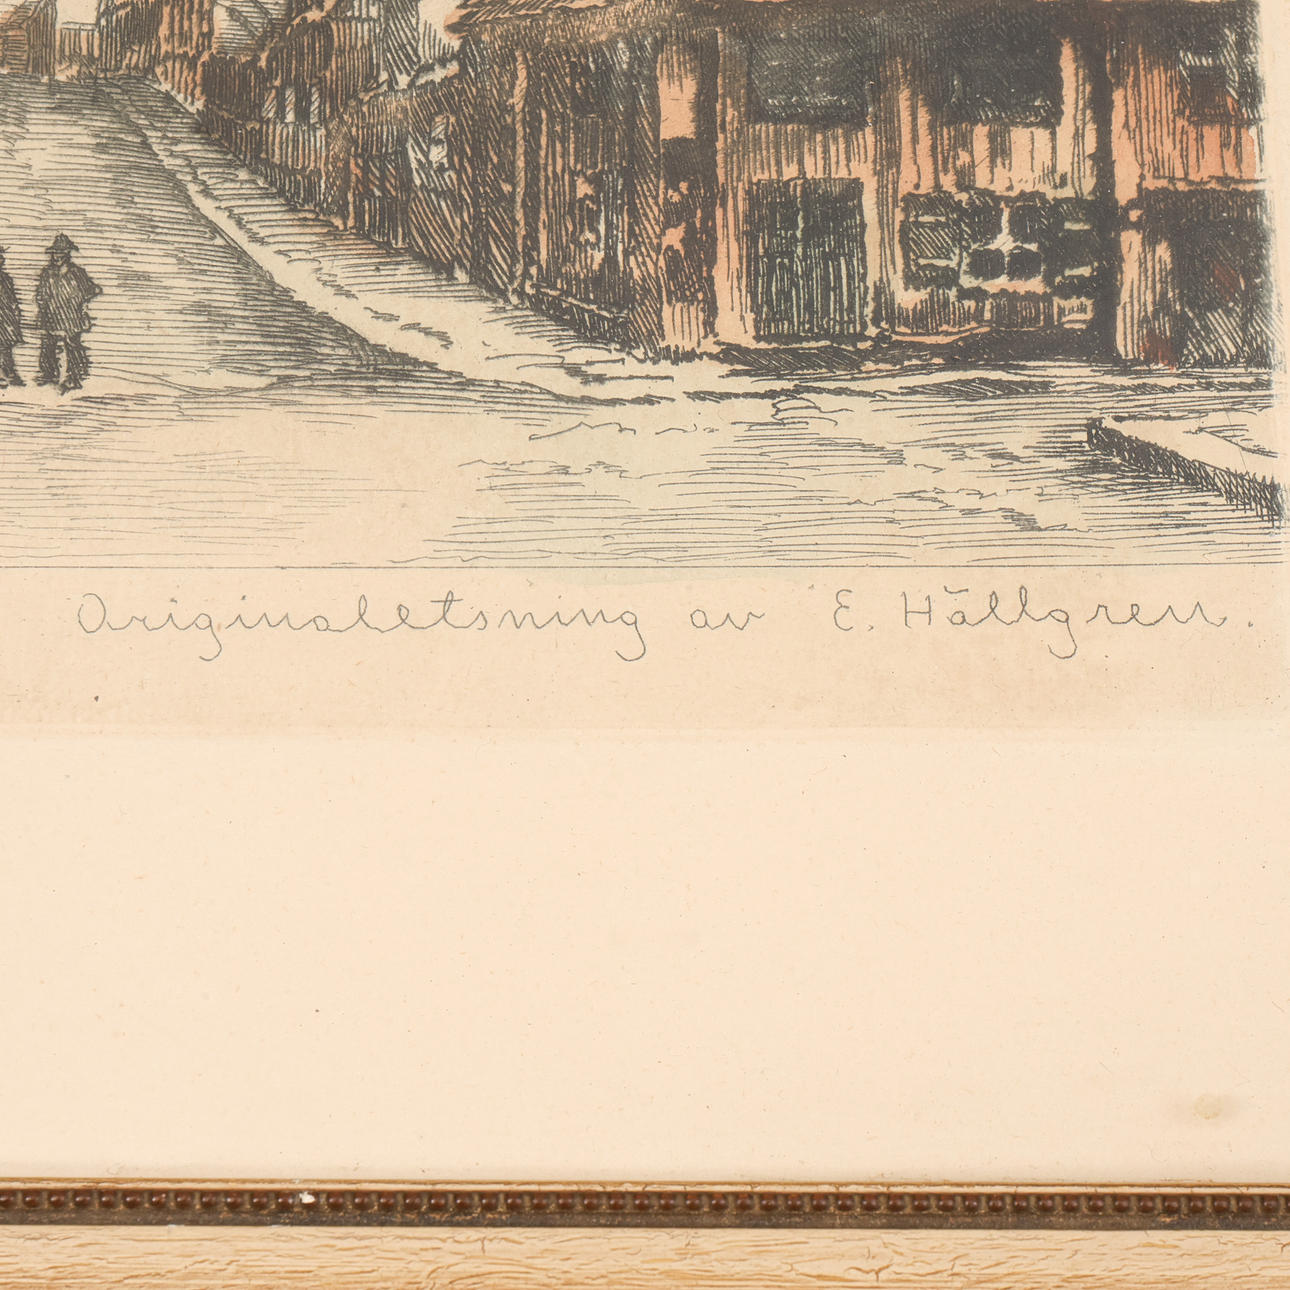 Originaletsning av E. Hällgren.